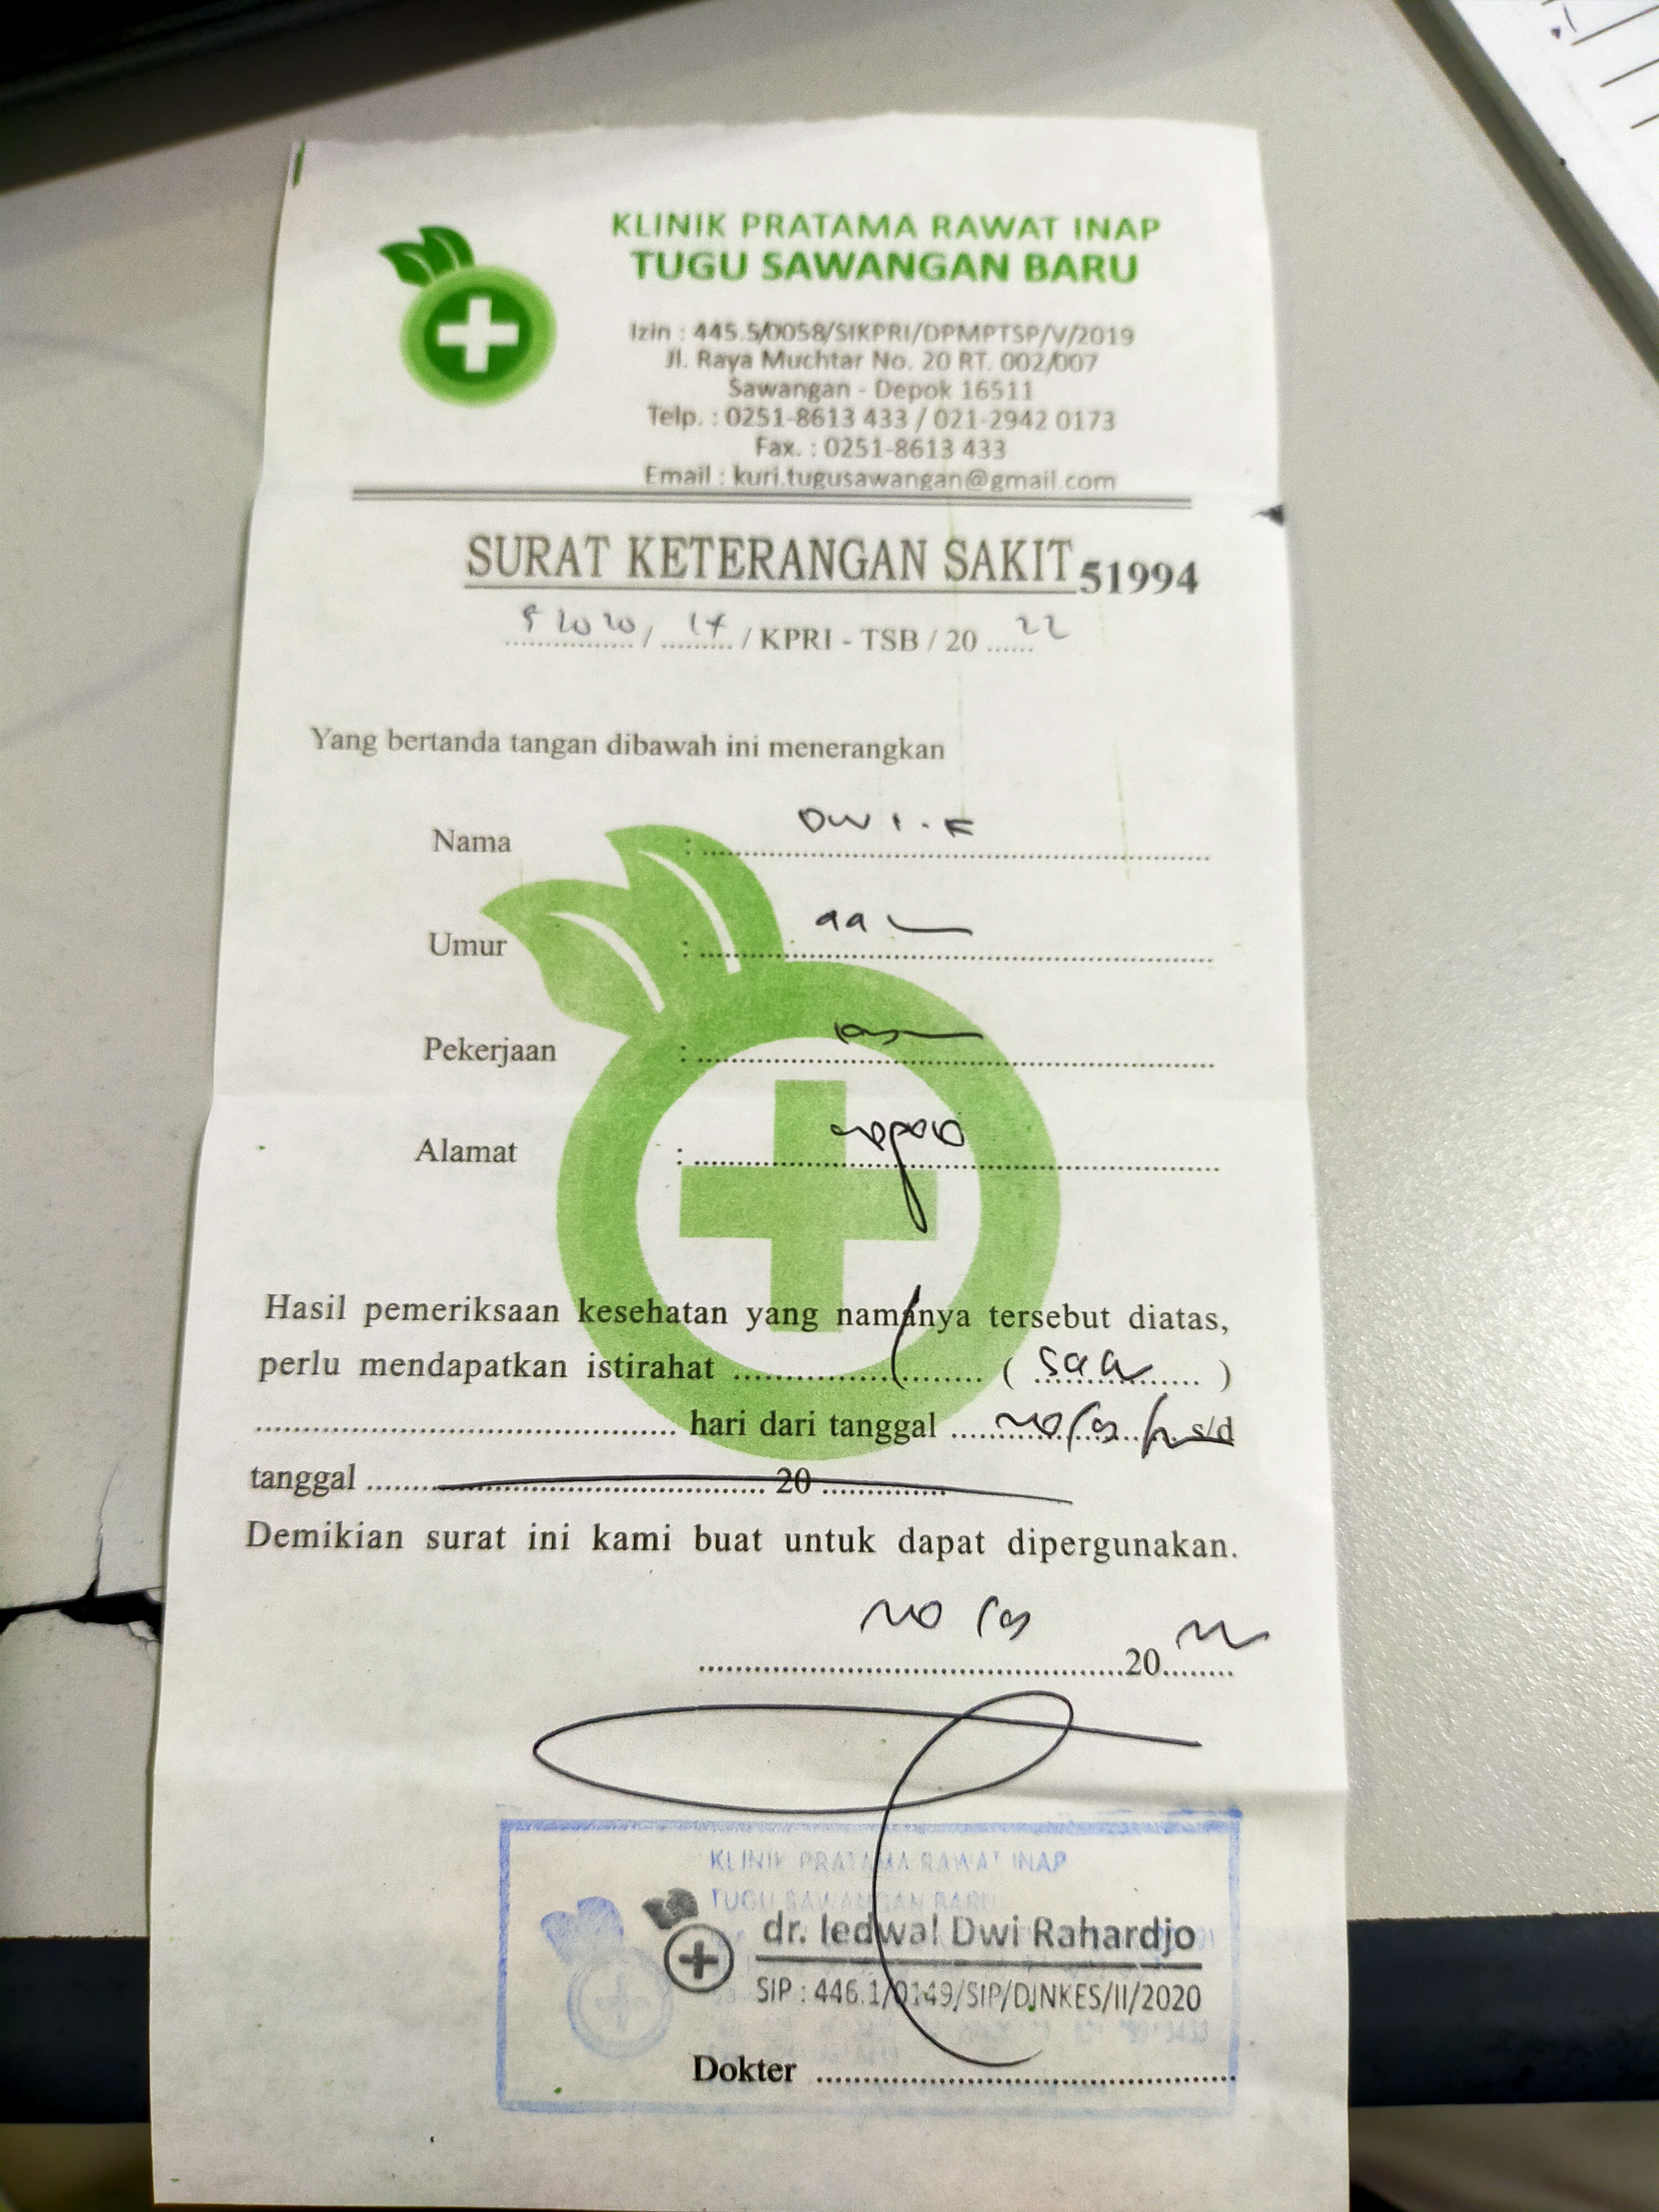 KLINIK PRATAMA RAWAT INAP
TUGU SAWANGAN BARU
Izin : 445.5/0058/SIKPRI/DPMPTSP/V/2019
Jl. Raya Muchtar No. 20 RT. 002/007
Sawangan - Depok 16511
Telp. : 0251-8613 433 / 021-2942 0173
Fax. : 0251-8613 433
Email : kuri.tugusawangan@gmail.com
SURAT KETERANGAN SAKIT 51994
/ / KPRI - TSB / 20 22
Yang bertanda tangan dibawah ini menerangkan
Nama : Dwi.F
Umur :
Pekerjaan :
Alamat :
Hasil pemeriksaan kesehatan yang namanya tersebut diatas,
perlu mendapatkan istirahat ( )
hari dari tanggal s/d
tanggal 20
Demikian surat ini kami buat untuk dapat dipergunakan.
20 22
KLINIK PRATAMA RAWAT INAP
TUGU SAWANGAN BARU
dr. Iedwal Dwi Rahardjo
SIP : 446.1/0149/SIP/DINKES/II/2020
Dokter